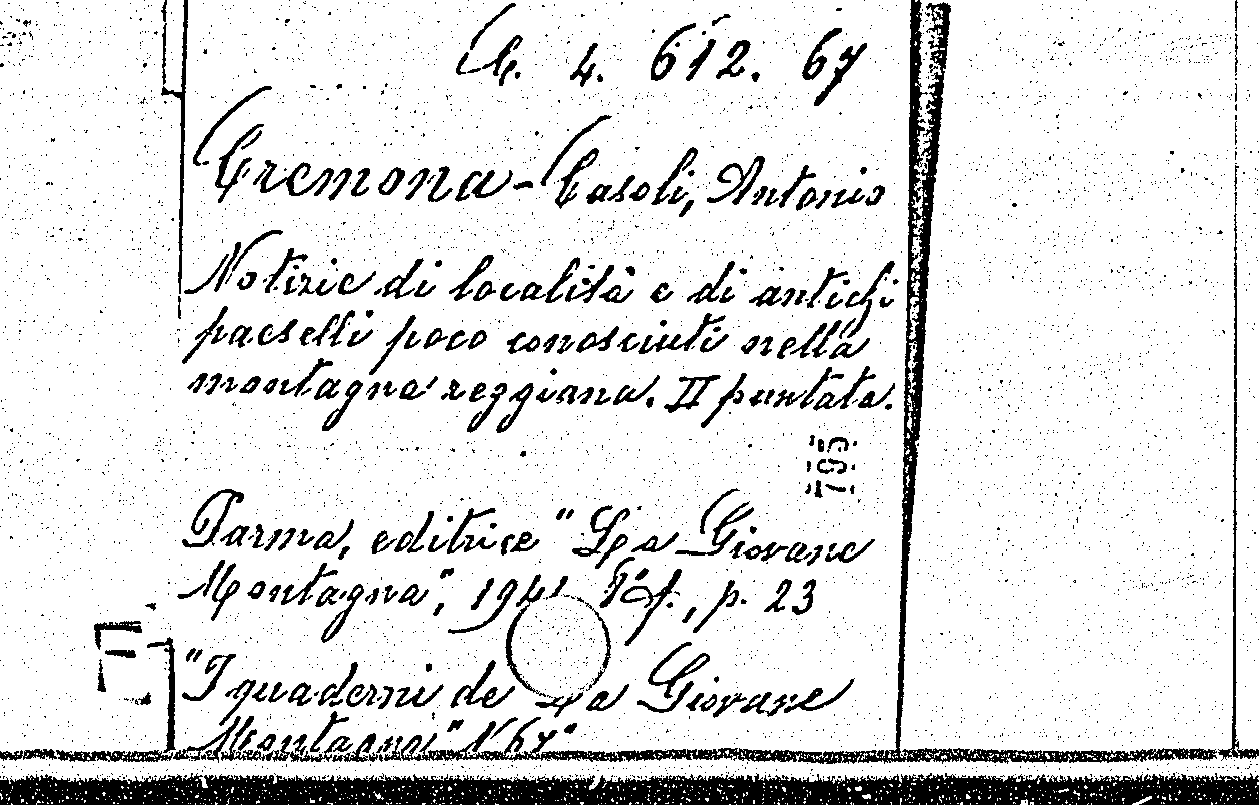 C. 4. 612. 67
Cremona-Casoli, Antonio
Notizie di località e di antichi
paeselli poco conosciuti nella
montagna reggiana. II puntata.
795
Parma, editrice "La Giovane
Montagna", 1941 8° f., p. 23
"I quaderni de La Giovane
Montagna" N° 67"